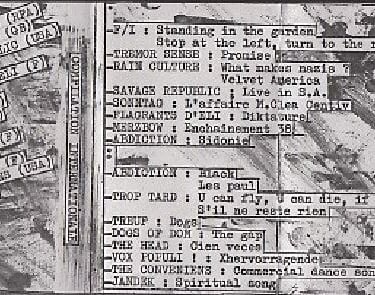 RFA)
(GB)
LIC (USA)
ELI (F)
(F)
(F)
(USA)
COMPILATION INTERNATIONALE
-F/I : Standing in the garden
Stop at the left, turn to the r
-TREMOR SENSE : Promise
-RAIN CULTURE : What makes nazis ?
Velvet America
-SAVAGE REPUBLIC : Live in S.A.
-SONNTAG : L'affaire M.Clea Centiv
-FLAGRANTS D'ELI : Diktature
-MERZBOW : Enchainement 38
-ABDICTION : Sidonie
-ABDICTION : Black
Les paul
-TROP TARD : U can fly, U can die, if
S'il ne reste rien
-PREUP : Dogs
-DOGS OF DOM : The gap
-THE HEAD : Cien veces
-VOX POPULI ! : Xhervorragende
-THE CONVENIENS : Commercial dance son
-JANDEK : Spiritual song